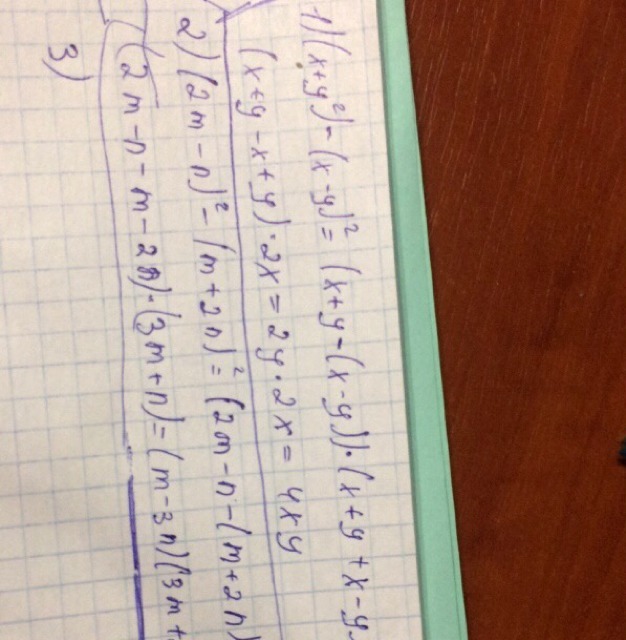 1) (x+y²) - (x-y)² = (x+y-(x-y))·(x+y+x-y
(x+y-x+y)·2x = 2y·2x = 4xy
2) (2m-n)² - (m+2n)² = (2m-n-(m+2n)
(2m-n-m-2n)·(3m+n) = (m-3n)(3m+
3)